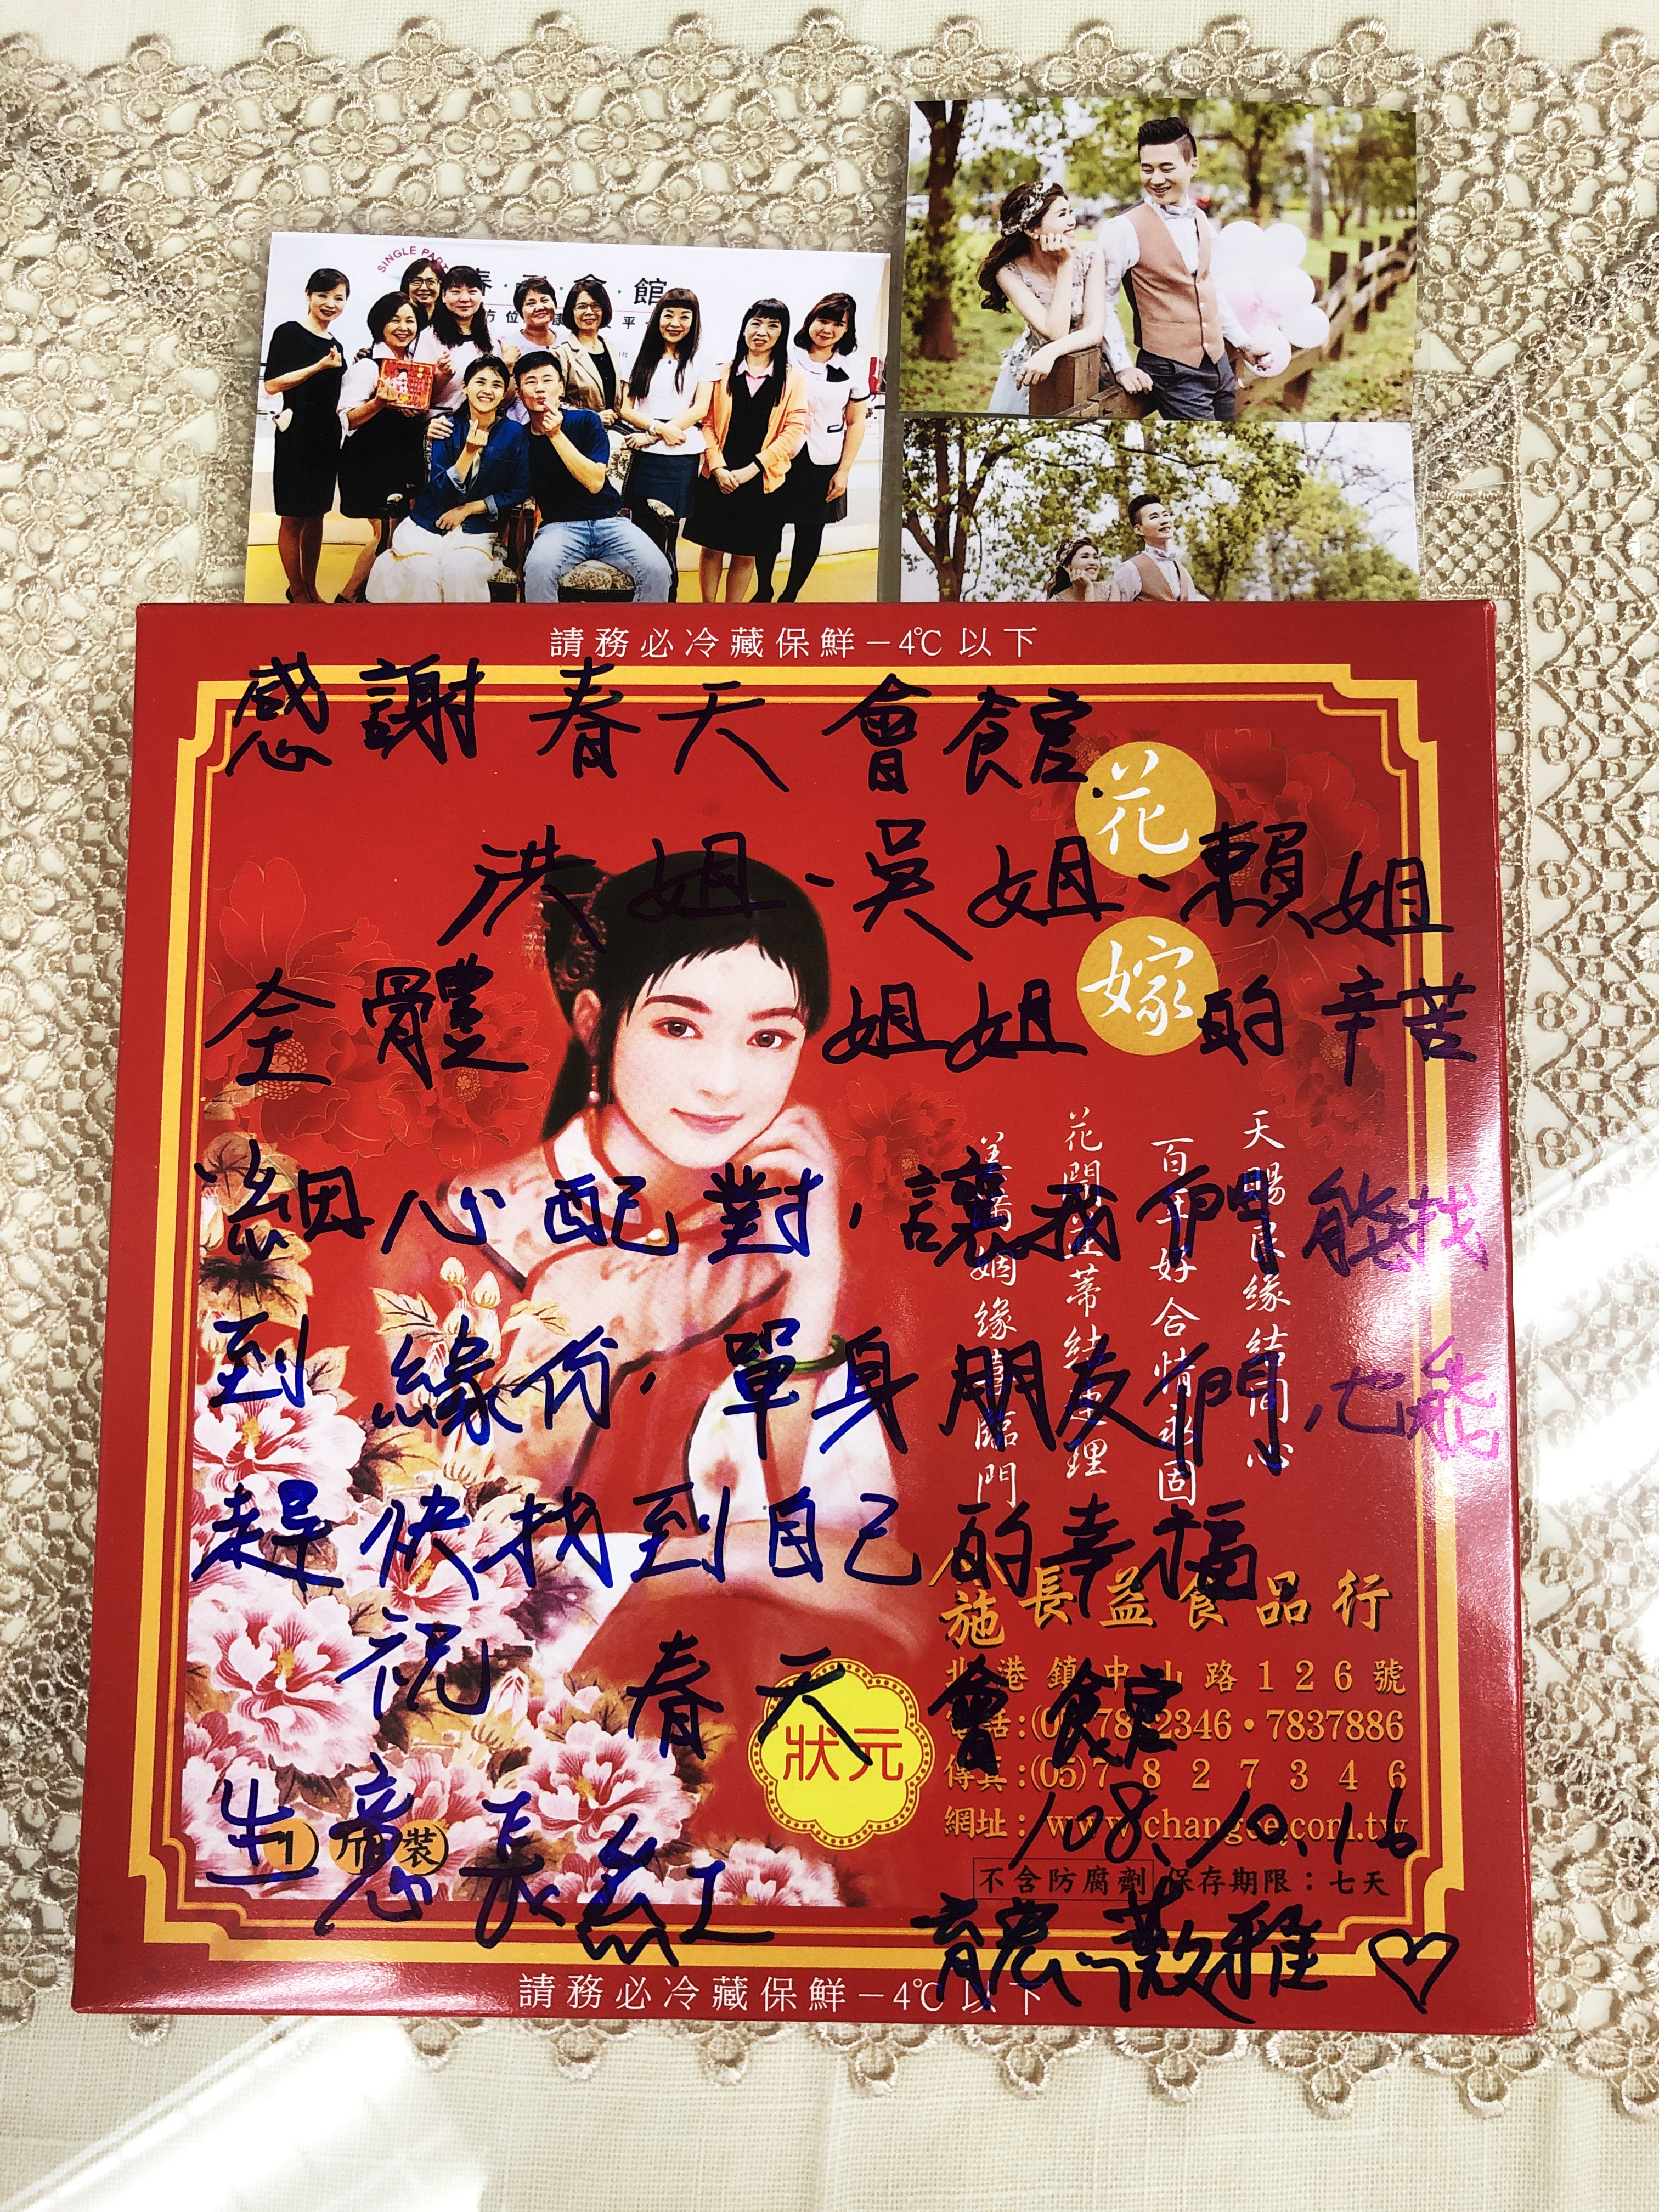 SINGLE PAR
春
會館
請務必冷藏保鮮－4℃以下
感謝春天會館
花嫁
洪姐、吳姐、賴姐
全體姐姐的辛苦
細心配對，讓我們能找
到緣份，單身朋友們也能
趕快找到自己的幸福
祝春天會館
生意長紅
108.10.16
薇雅♡
天賜良緣結同心
百年好合情永固
花開並蒂結連理
施長益食品行
北港鎮中山路126號
2346・7837886
傳真：(05)7827346
網址：
狀元
1斤裝
不含防腐劑 保存期限：七天
請務必冷藏保鮮－4℃以下